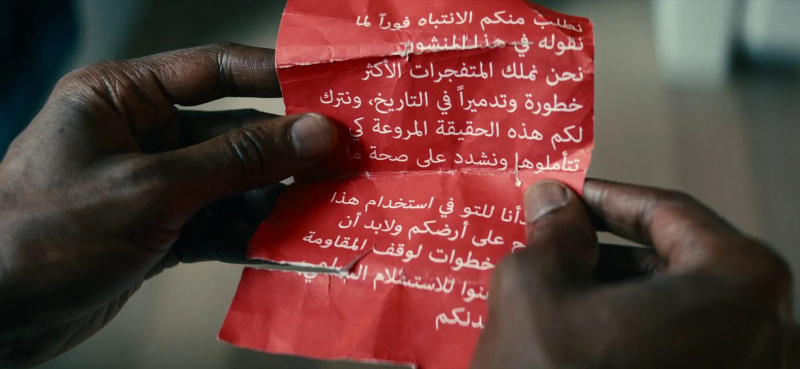 نطلب منكم الانتباه فوراً لما
نقوله في هذا المنشور.
نحن نملك المتفجرات الأكثر
خطورة وتدميراً في التاريخ، ونترك
لكم هذه الحقيقة المروعة كي
تتأملوها ونشدد على صحة ما
للتو في استخدام هذا
على أرضكم ولابد أن
خطوات لوقف المقاومة
للاستسلام